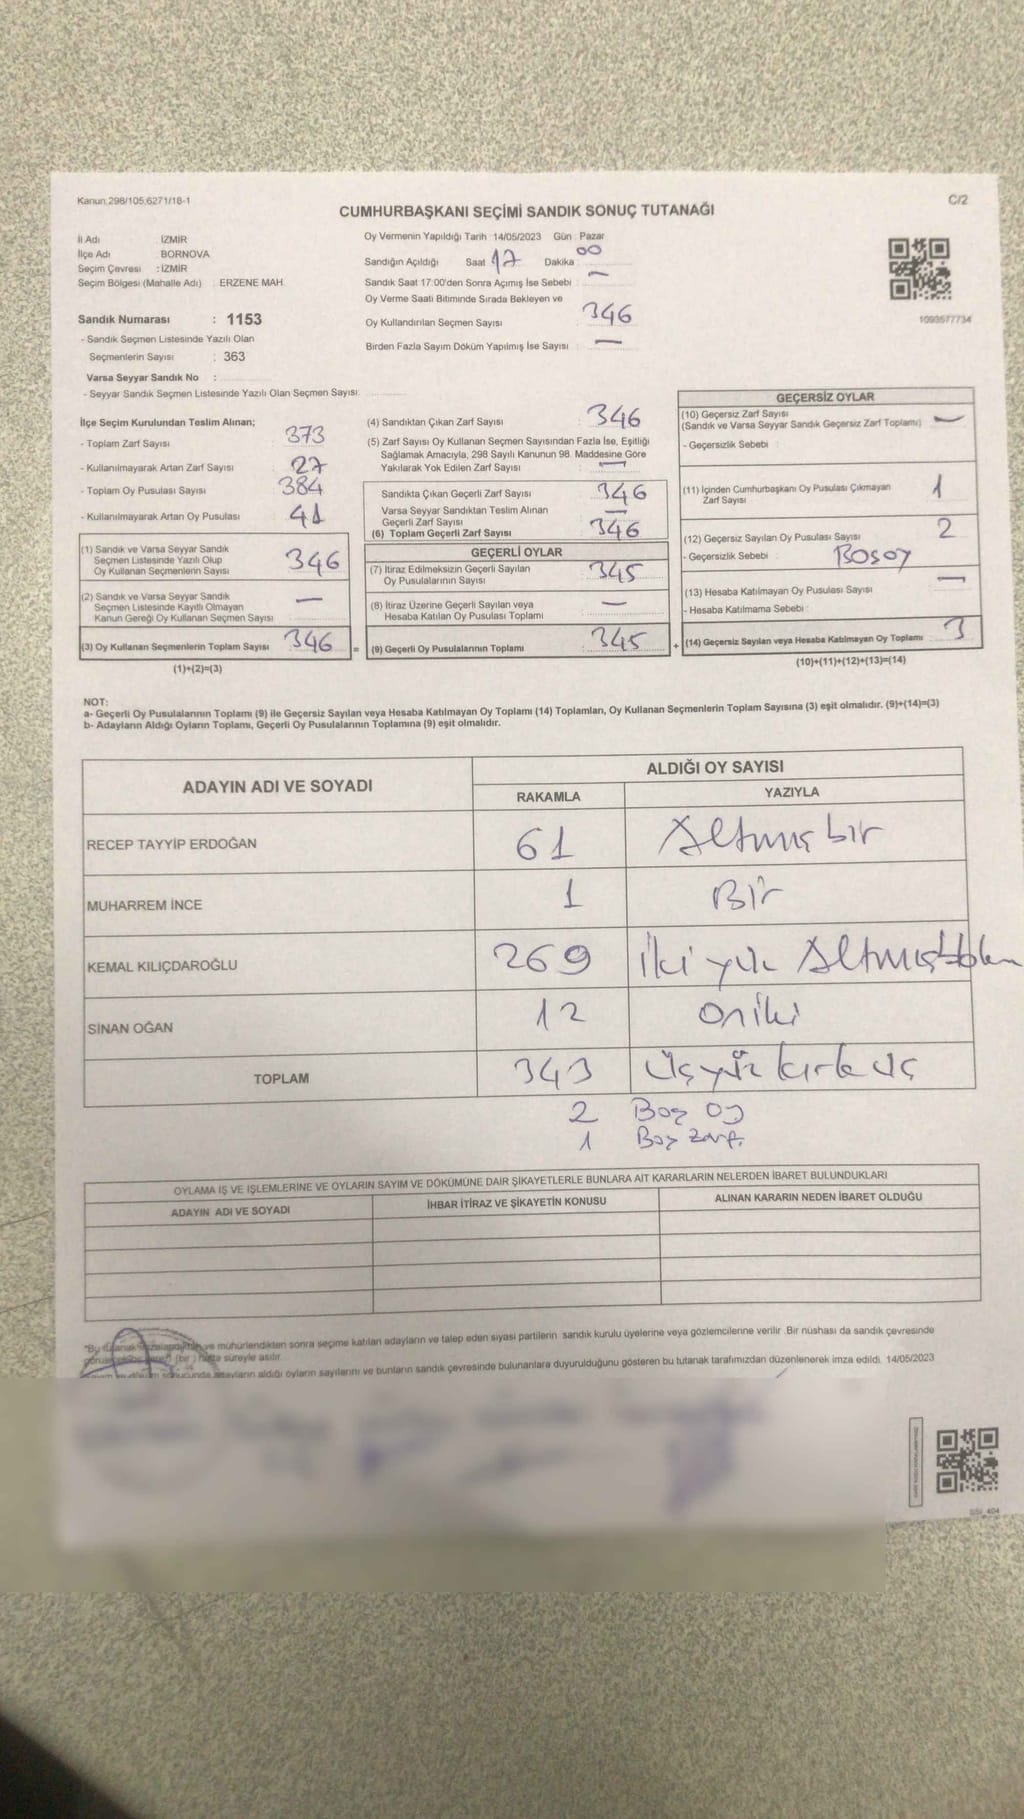 Kanun 298/105,6271/18-1
C/2
CUMHURBAŞKANI SEÇİMİ SANDIK SONUÇ TUTANAĞI
İl Adı : İZMİR
İlçe Adı : BORNOVA
Seçim Çevresi : İZMİR
Seçim Bölgesi (Mahalle Adı) : ERZENE MAH.
Sandık Numarası : 1153
- Sandık Seçmen Listesinde Yazılı Olan
Seçmenlerin Sayısı : 363
Varsa Seyyar Sandık No :
- Seyyar Sandık Seçmen Listesinde Yazılı Olan Seçmen Sayısı:
Oy Vermenin Yapıldığı Tarih :14/05/2023 Gün : Pazar
Sandığın Açıldığı Saat 17 Dakika 00
Sandık Saat 17:00'den Sonra Açımış İse Sebebi : —
Oy Verme Saati Bitiminde Sırada Bekleyen ve
Oy Kullandırılan Seçmen Sayısı 346
Birden Fazla Sayım Döküm Yapılmış İse Sayısı : —
1093577734
İlçe Seçim Kurulundan Teslim Alınan;
- Toplam Zarf Sayısı 373
- Kullanılmayarak Artan Zarf Sayısı 27
- Toplam Oy Pusulası Sayısı 384
- Kullanılmayarak Artan Oy Pusulası 41
(1) Sandık ve Varsa Seyyar Sandık
Seçmen Listesinde Yazılı Olup
Oy Kullanan Seçmenlerin Sayısı 346
(2) Sandık ve Varsa Seyyar Sandık
Seçmen Listesinde Kayıtlı Olmayan
Kanun Gereği Oy Kullanan Seçmen Sayısı —
(3) Oy Kullanan Seçmenlerin Toplam Sayısı 346 =
(1)+(2)=(3)
(4) Sandıktan Çıkan Zarf Sayısı 346
(5) Zarf Sayısı Oy Kullanan Seçmen Sayısından Fazla İse, Eşitliği
Sağlamak Amacıyla, 298 Sayılı Kanunun 98. Maddesine Göre
Yakılarak Yok Edilen Zarf Sayısı —
Sandıkta Çıkan Geçerli Zarf Sayısı 346
Varsa Seyyar Sandıktan Teslim Alınan
Geçerli Zarf Sayısı —
(6) Toplam Geçerli Zarf Sayısı 346
GEÇERLİ OYLAR
(7) İtiraz Edilmeksizin Geçerli Sayılan
Oy Pusulalarının Sayısı 345
(8) İtiraz Üzerine Geçerli Sayılan veya
Hesaba Katılan Oy Pusulası Toplamı —
(9) Geçerli Oy Pusulalarının Toplamı 345 +
GEÇERSİZ OYLAR
(10) Geçersiz Zarf Sayısı
(Sandık ve Varsa Seyyar Sandık Geçersiz Zarf Toplamı) —
- Geçersizlik Sebebi :
(11) İçinden Cumhurbaşkanı Oy Pusulası Çıkmayan
Zarf Sayısı 1
(12) Geçersiz Sayılan Oy Pusulası Sayısı 2
- Geçersizlik Sebebi : BOŞOY
(13) Hesaba Katılmayan Oy Pusulası Sayısı —
- Hesaba Katılmama Sebebi :
(14) Geçersiz Sayılan veya Hesaba Katılmayan Oy Toplamı 3
(10)+(11)+(12)+(13)=(14)
NOT:
a- Geçerli Oy Pusulalarının Toplamı (9) ile Geçersiz Sayılan veya Hesaba Katılmayan Oy Toplamı (14) Toplamları, Oy Kullanan Seçmenlerin Toplam Sayısına (3) eşit olmalıdır. (9)+(14)=(3)
b- Adayların Aldığı Oyların Toplamı, Geçerli Oy Pusulalarının Toplamına (9) eşit olmalıdır.
ADAYIN ADI VE SOYADI
ALDIĞI OY SAYISI
RAKAMLA YAZIYLA
RECEP TAYYİP ERDOĞAN 61 Altmış bir
MUHARREM İNCE 1 Bir
KEMAL KILIÇDAROĞLU 269 İki yüz Altmış
SİNAN OĞAN 12 oniki
TOPLAM 343 üçyüz kırk üç
2 Boş oy
1 Boş zarf.
OYLAMA İŞ VE İŞLEMLERİNE VE OYLARIN SAYIM VE DÖKÜMÜNE DAİR ŞİKAYETLERLE BUNLARA AİT KARARLARIN NELERDEN İBARET BULUNDUKLARI
ADAYIN ADI VE SOYADI İHBAR İTİRAZ VE ŞİKAYETİN KONUSU ALINAN KARARIN NEDEN İBARET OLDUĞU
ve mühürlendikten sonra seçime katılan adayların ve talep eden siyasi partilerin sandık kurulu üyelerine veya gözlemcilerine verilir. Bir nüshası da sandık çevresinde
(bir) hafta süreyle asılır.
sonucunda adayların aldığı oyların sayılarını ve bunların sandık çevresinde bulunanlara duyurulduğunu gösteren bu tutanak tarafımızdan düzenlenerek imza edildi. 14/05/2023